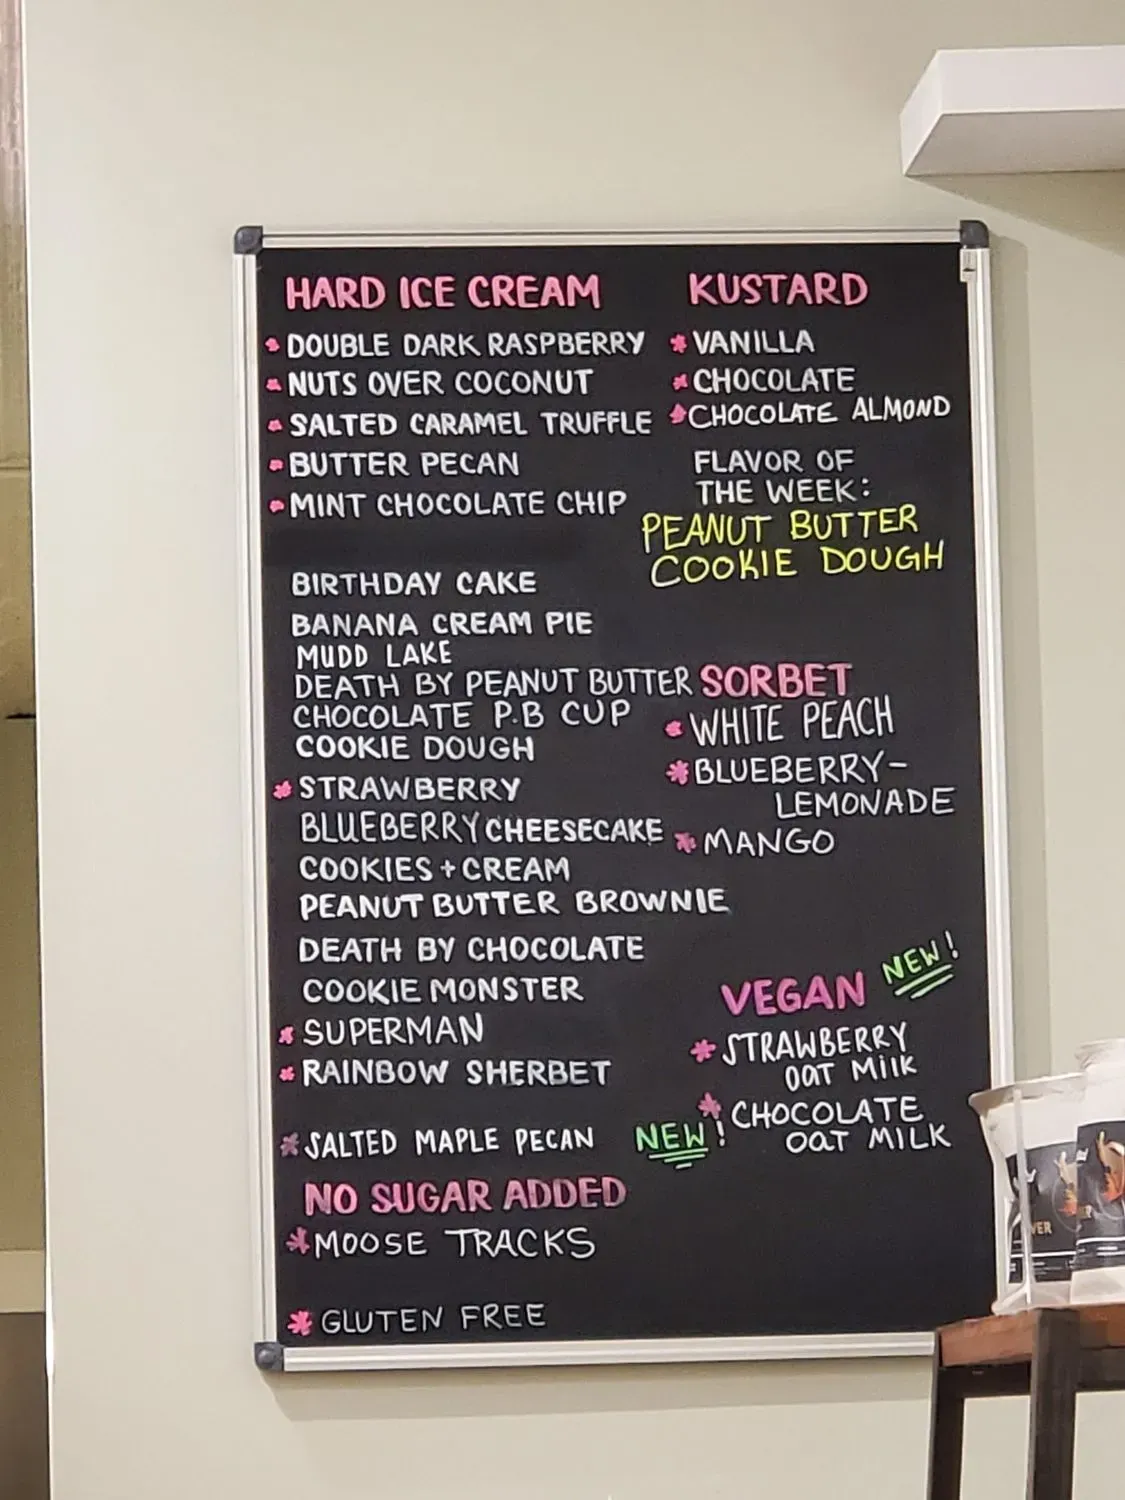 HARD ICE CREAM
* DOUBLE DARK RASPBERRY
* NUTS OVER COCONUT
* SALTED CARAMEL TRUFFLE
* BUTTER PECAN
* MINT CHOCOLATE CHIP
BIRTHDAY CAKE
BANANA CREAM PIE
MUDD LAKE
DEATH BY PEANUT BUTTER
CHOCOLATE P.B CUP
COOKIE DOUGH
* STRAWBERRY
BLUEBERRY CHEESECAKE
COOKIES + CREAM
PEANUT BUTTER BROWNIE
DEATH BY CHOCOLATE
COOKIE MONSTER
* SUPERMAN
* RAINBOW SHERBET
* SALTED MAPLE PECAN NEW!
NO SUGAR ADDED
* MOOSE TRACKS
* GLUTEN FREE
KUSTARD
* VANILLA
* CHOCOLATE
* CHOCOLATE ALMOND
FLAVOR OF
THE WEEK:
PEANUT BUTTER
COOKIE DOUGH
SORBET
* WHITE PEACH
* BLUEBERRY-
LEMONADE
* MANGO
VEGAN NEW!
* STRAWBERRY
OAT MILK
* CHOCOLATE
OAT MILK